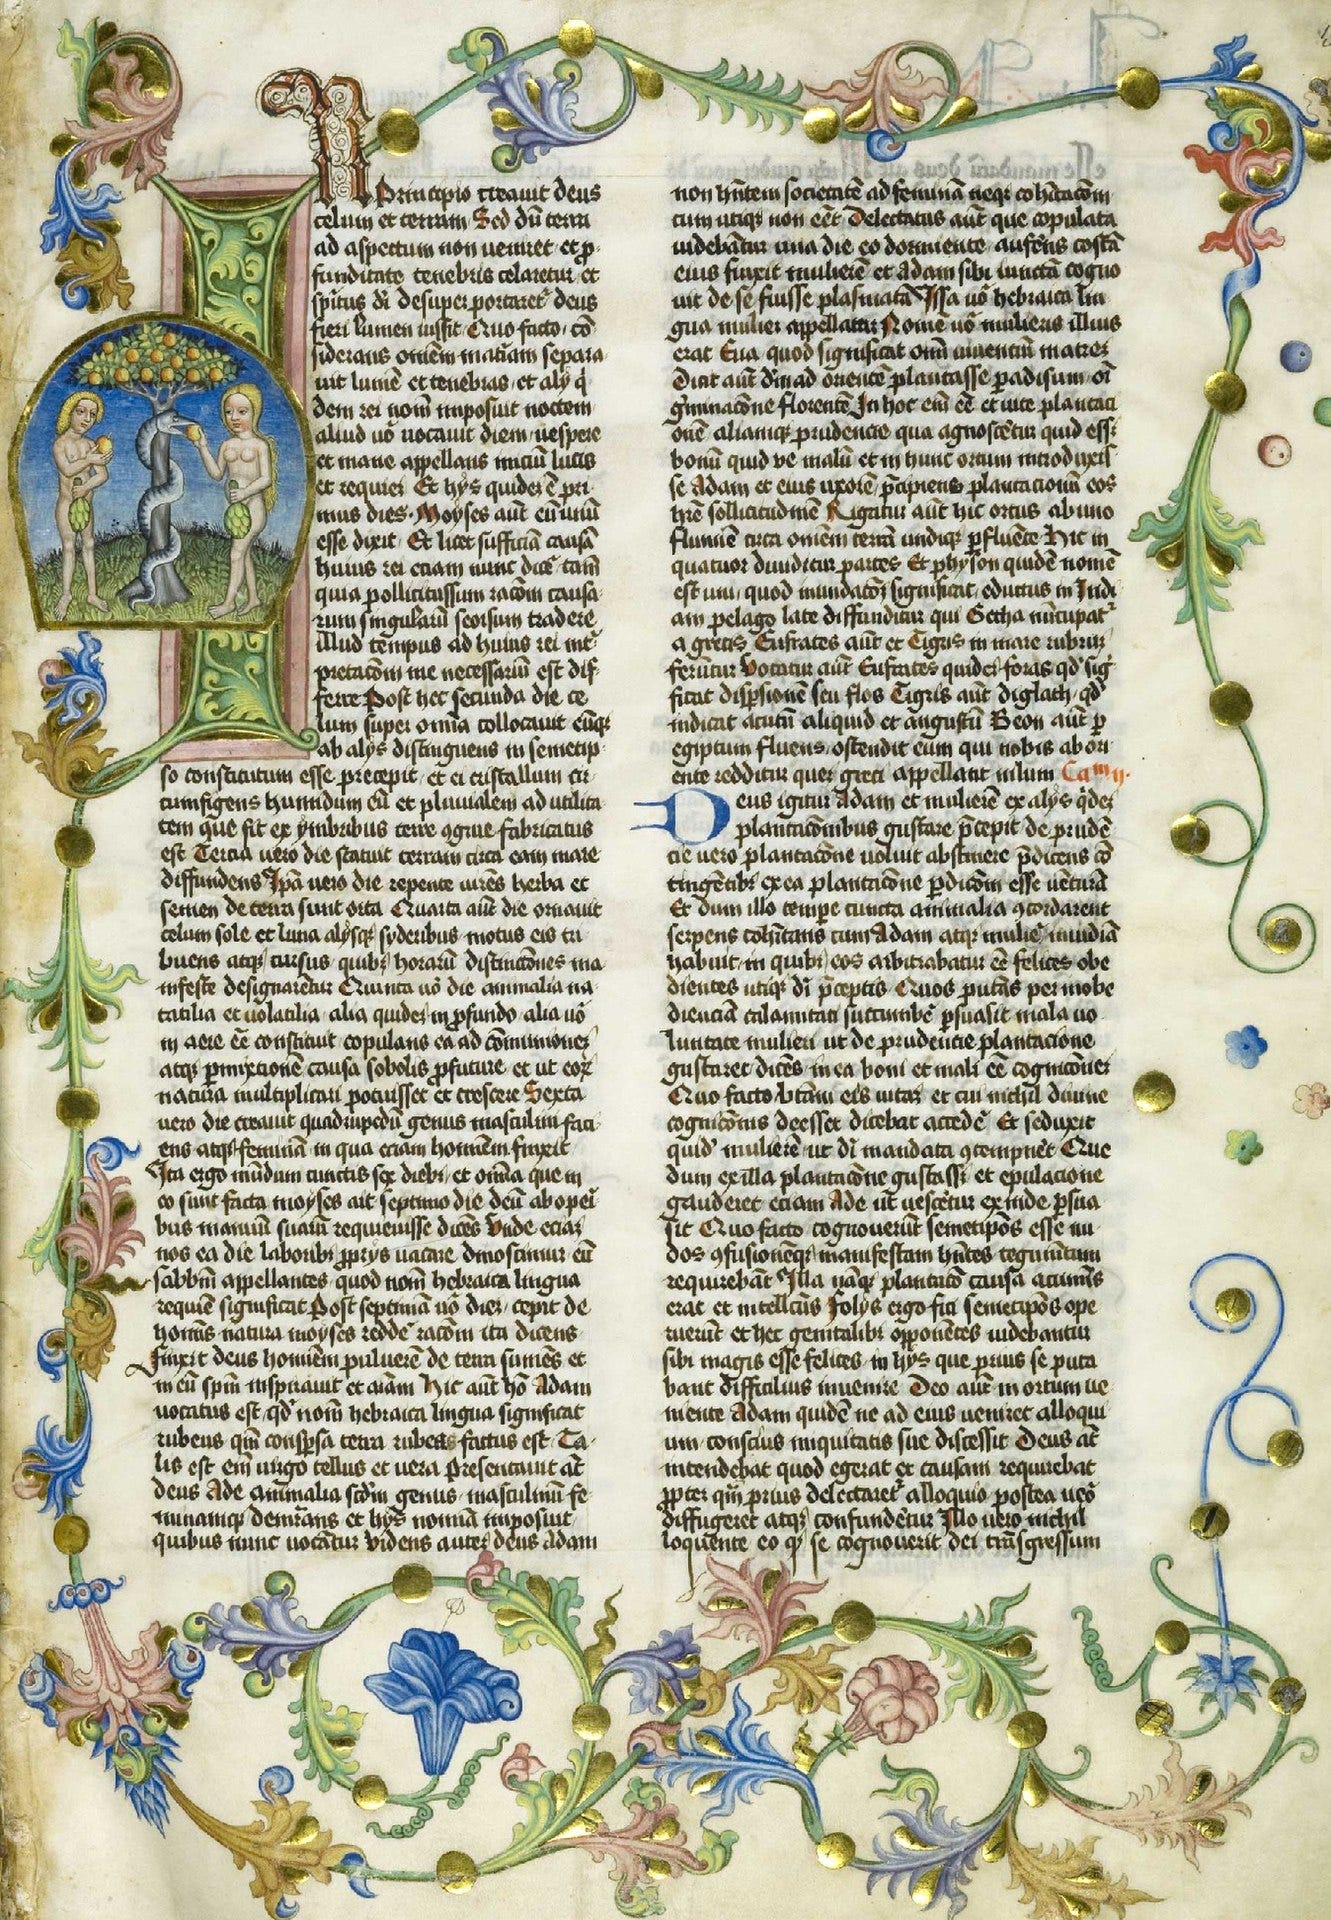 In Principio creauit deus
celum et terram Sed dū terra
ad aspectum non ueniret et p̱-
funditate tenebris celaretur et
sp̄itus dī desuper portaretʳ deus
fieri lumen iussit Quo facto cō
siderans om̄em mat̄iam separa-
uit lumē et tenebras et alij q̇
dem rei nom̄ imposuit noctem
aliud uo᷑ uocauit diem uespere
et mane appellans iniciū lucis
et requiei Et hijs quideʒ ē pri-
mus dies Moyses aut̄ eū unū
esse dixit Et licet sufficiā causā
huius rei eciam nunc dic̄e tam̄
quia pollicitussum rac̄oem causa-
rum singularū seorsum tradere
illud tempus ad huius rei int̄-
pretac̄oem me necessariū est dif-
ferre Post hec secunda die ce
lum super omnia collocauit eūqʒ
ab alijs distinguens in semetip-
so constitutum esse precepit et ei cristallum cir-
cumfigens humidum eū et pluuialem ad utilita
tem que fit ex ymbribus terre ꝯgrue fabricatus
est Tercia uero die statuit terram circa eam mare
diffundens Ip̄a uero die repente uirēs herba et
semen de terra sunt orta Quarta aut̄ die ornauit
celum sole et luna alijsqʒ syderibus motus eis tri
buens atqʒ cursus quibʒ horarū distincc̄ones ma-
nifeste designarētur Quinta uo᷑ die animalia na
tatilia et uolatilia alia quidez in p̱fundo alia uo᷑
in aere ēē constituit copulans ea ad cōmunionez
atqʒ p̱mixtionē causa sobolis p̱future et ut eoꝝ
natura multiplicari potuisset et crescere Sexta
uero die creauit quadrupedū genus masculin̄ faci-
ens atqʒ feminā in qua eciam hominem finxit
Ita ergo mūdum cunctis sex diebʒ et omīa que in
eo sunt facta moyses ait septimo die deū ab oper̄i
bus manuū suaꝝ requieuisse dicēs Unde eciaʒ
nos ea die laboribʒ p̱prijs uacare dinoscimur eū
sabbm̄ appellantes quod nom̄ hebraica lingua
requiē significat Post septimā uo᷑ dieʒ cepit de
homīs natura moyses redde᷑ rac̄om ita dicens
finxit deus hominem puluerē de terra sumēs et
in eū sp̄m inspirauit et aīam Hic aut̄ hō Adam
uocatus est qd᷑ nom̄ hebraica lingua significat
rubeus qm̄ consp̱sa terra rubea factus est Ta-
lis est em̄ uirgo tellus et uera Presentauit at̄
deus Ade animalia scd̄m genus masculinū fe-
mininamqʒ demr̄ans et hijs nomina imposuit
quibus nunc uocātur Videns auteʒ deus Adam
non hn̄tem societatē ad feminā neqʒ cohītac̄om
cum utiqʒ non eēt Delectatus aut̄ que copulata
uidebātur una die eo dormiente aufer̄ns costā
eius finxit mulierē et Adam sibi iunctā cogno
uit de se fuisse plasmatā Issa uo᷑ hebraica lin
gua mulier appellatur Nomē uo᷑ mulieris illius
erat Eua quod significat om̄i uiuentiū matreʒ
Dicit aut̄ dm̄ ad orientē plantasse padisum oī
g̓minac̄one florentē In hoc em̄ ēē et uite plantaci
onē aliamqʒ prudencie qua agnoscētur quid esset
bonū quid ve malū et in hunc ortum introduxis-
se Adam et eius uxorē p̄cipiens plantacionū eos
h̄re sollicitudinē Rigatur aut̄ hic ortus ab uno
flumine circa om̄em terrā undiqʒ p̱fluēte Hic in
quatuor diuiditur partes Et physon quidē nomē
est uni quod inundac̄oʒ significat eductus in Indi
am pelago late diffunditur qui Getha nūcupatʳ
a grecis Eufrates aut̄ et Tigris in mare rubruʒ
feruntur Vocatur aut̄ Eufrates quideʒ foras qd᷑ sig̓
ficat disp̱sionē seu flos Tigris aut̄ diglath qd᷑
indicat acutū aliquid et angustū Geon aut̄ p̱
egiptum fluens ostendit eum qui nobis ab ori-
ente redditur queʒ greci appellant nilum Cam̄ ij.
Deus igitur Adam et mulierē ex alijs q̇deʒ
plantac̄onibus gustare p̄cepit de prudē
cie uero plantac̄one uoluit abstinere p̄dicens cō
tingētibʒ ex ea plantac̄one p̱dic̄om esse uenturā
Et dum illo temp̱e cuncta animalia ꝯcordarent
serpens cohītans cum Adam atqʒ mulie᷑ inuidiā
habuit in quibʒ eos arbitrabatur ēē felices obe
dientes utiqʒ dī p̄ceptis Quos putās per inobe
dienciā calamitati succumbe᷑ p̱suasit mala uo-
luntate mulieri ut de prudencie plantacione
gustaret dicēs in ea boni et mali ēē cognic̄oneʒ
Quo facto btām eis uitaʒ et cui nichil diuine
cognic̄onis deesset dicebat accede᷑ Et seduxit
quid᷑ mulierē ut dī mandata ꝯtempn̄et Que
dum ex illa plantac̄one gustass̄ et epulacione
gauderet eciam Ade ut uescetur exinde p̱sua
sit Quo facto cognouerūt semetip̄os esse nu
dos ꝯfusionēqʒ manifestam hn̄tes tegum̄tum
requirebāt Illa nāqʒ plantac̄o causa acum̄is
erat et intellc̄us folijs ergo fici semetip̄os ope
ruerūt et hec genitalibʒ opponētes uidebantur
sibi magis esse felices in hijs que prius se puta
bant difficilius inuenire Deo aut̄ in ortum ue
niente Adam quidē ne ad eius ueniret alloqui
um conscius iniquitatis sue discessit Deus at̄
intendebat quod egerat et causam requirebat
p̱pter qm̄ prius delectaretʳ alloquio postea ueo᷑
diffugeret atqʒ confundētur Illo uero nichil
loquente eo qʒ se cognouerit dei trāsgressum